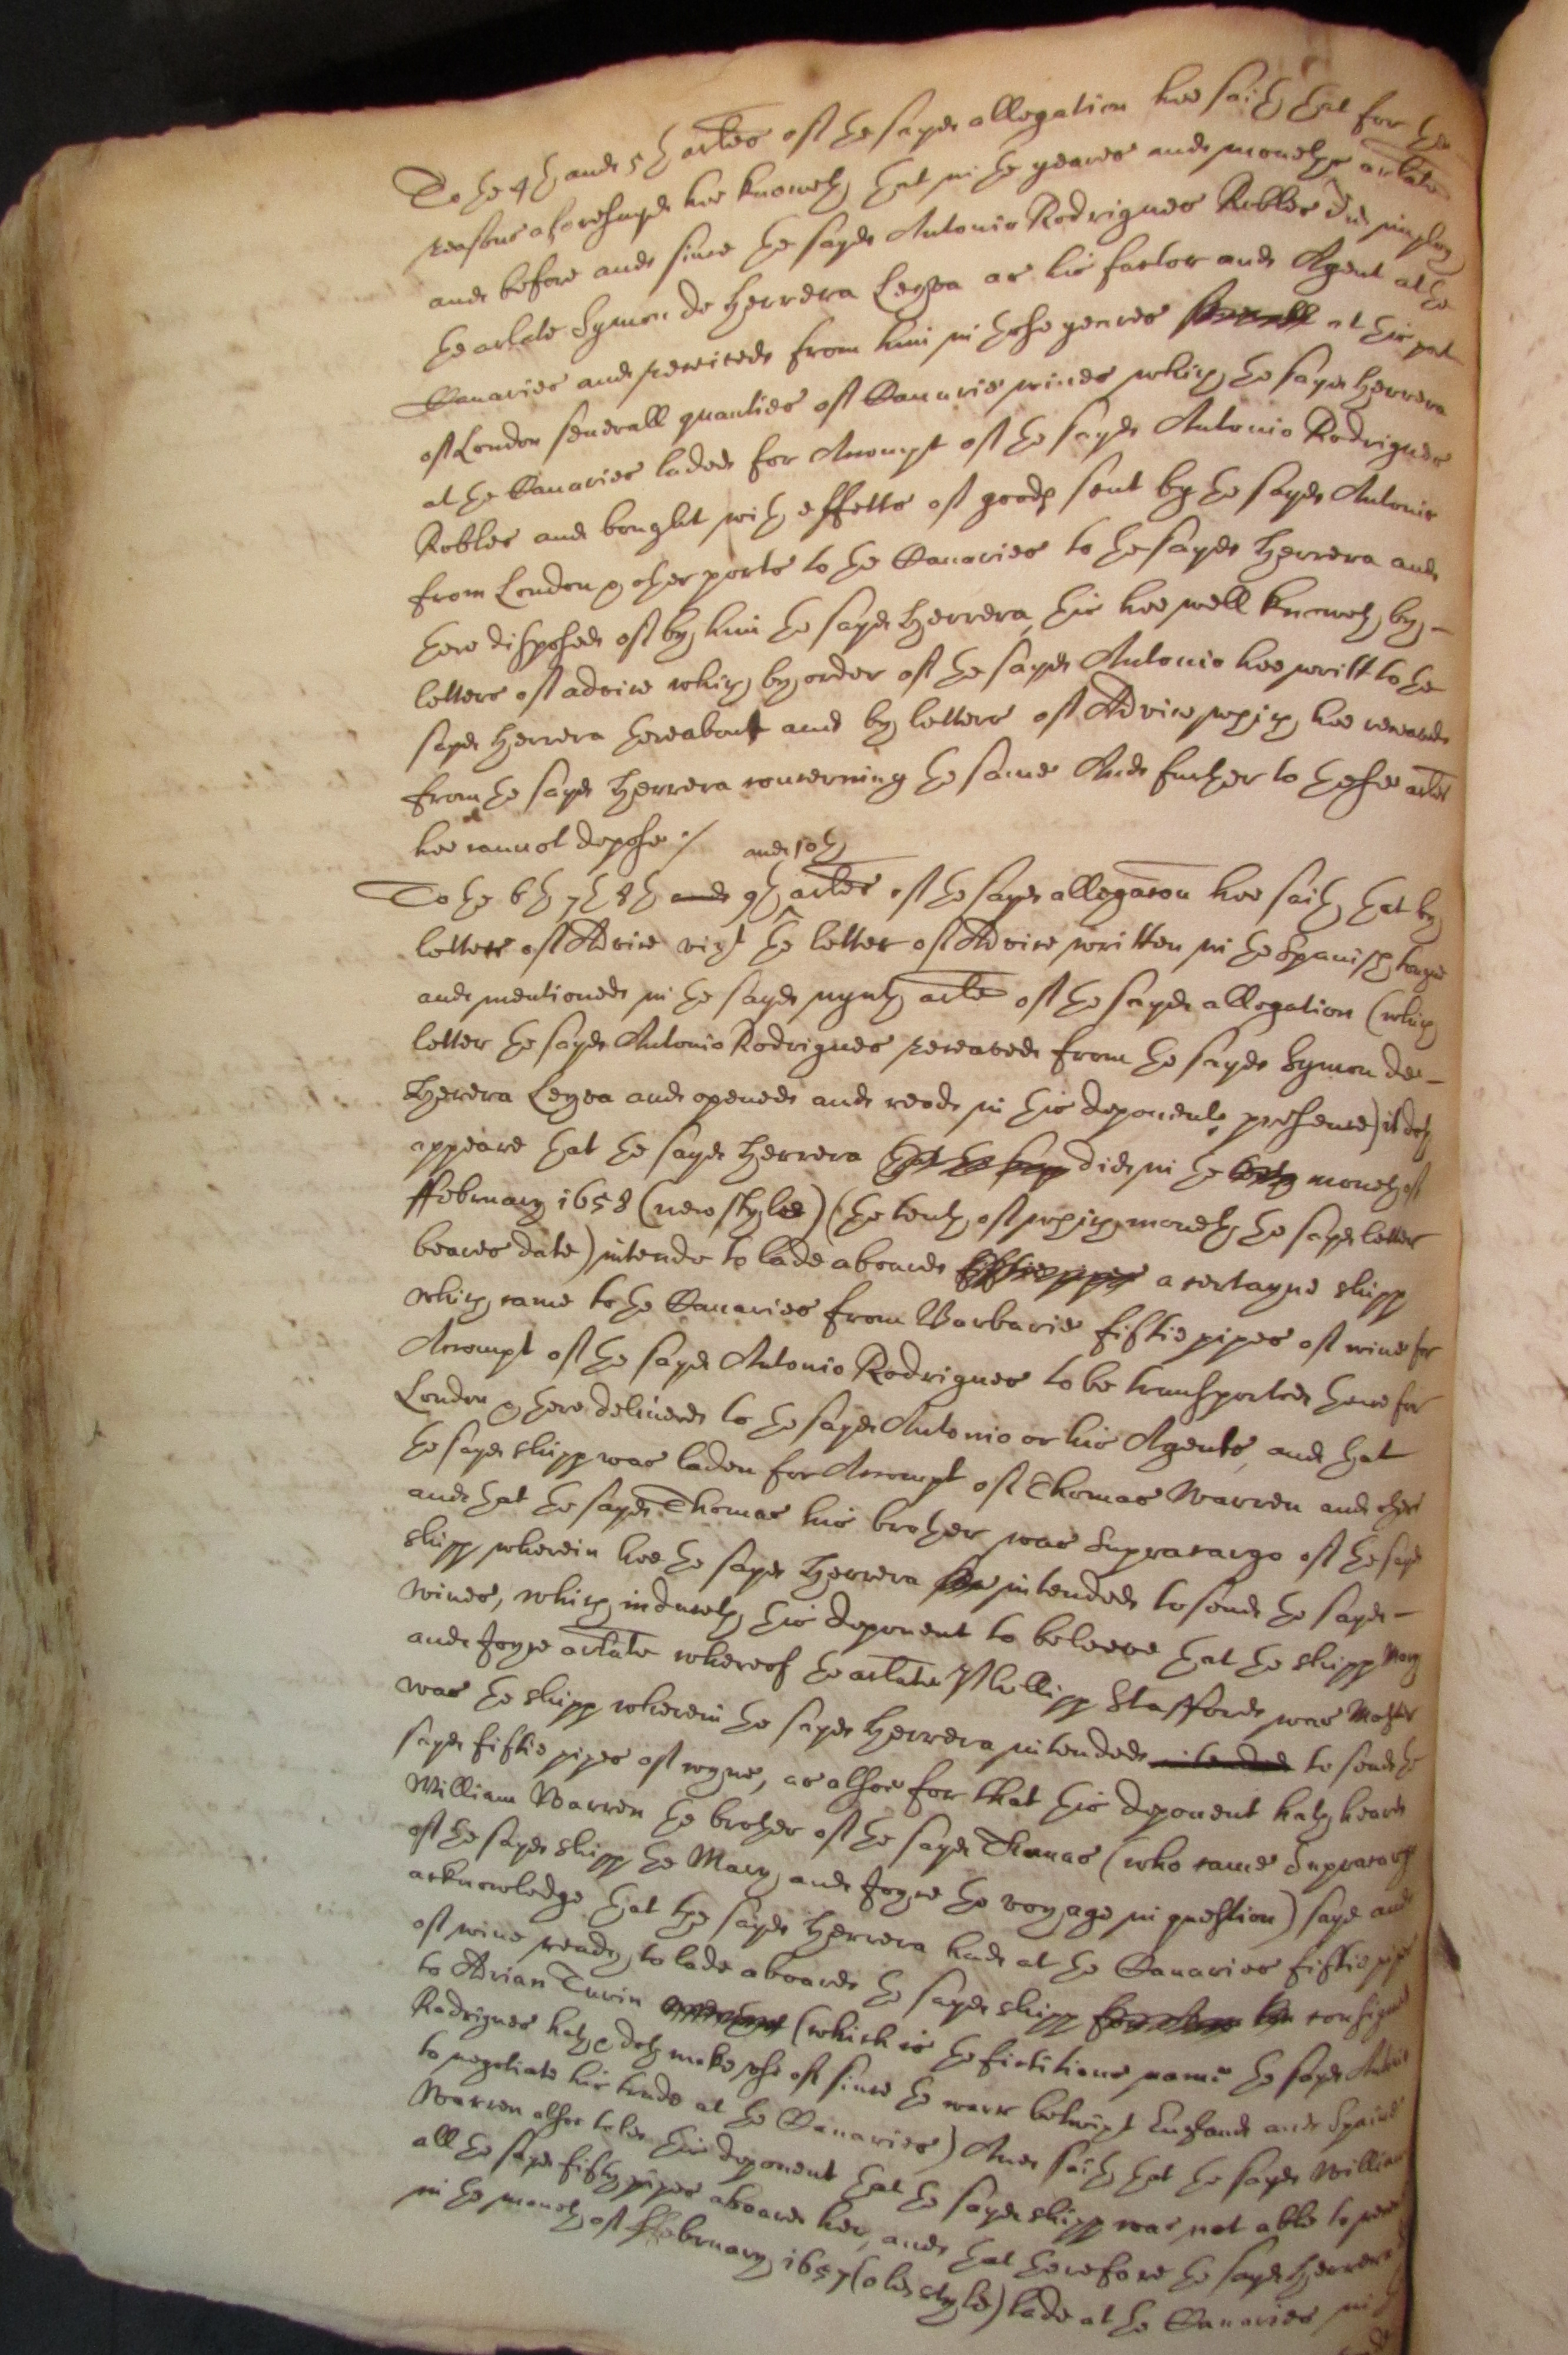 To the 4th and 5th arles of the sayd allegation hee saith that for the
reasons aforesayd hee knoweth that in the yeares and moneths arlate
and before and since the sayd Antonio Rodrigues Robles did imploy
the arlate Symon de Herrera Leyva as his factor and Agent at the
Canaries and received from him in those yeares severall at this port
of London severall quanties of Canarie wines which the sayd Herrera
at the Canaries laded for Accompt of the sayd Antonio Rodrigues
Robles and bought with effetts of goods sent by the sayd Antonio
from London & other ports to the Canaries to the sayd Herrera and
there disposed of by him the sayd Herrera, this hee well knoweth by -
letters of advice which by order of the sayd Antonio hee writt to the
sayd Herrera thereabout and by letters of Advice which hee receaved
from the sayd Herrera concerning the same And further to these arles
hee cannot depose :/
and 10th
To the 6th 7th 8th and 9th arles of the sayd allegacon hee saith that by
letters of Advice vizt the letter of Advice written in the Spanish tongue
and mentioned in the sayd nynth arle of the sayd allegation (which
letter the sayd Antonio Rodrigues receaved from the sayd Symon de -
Herera Leyva and opened and reade in this deponents presence) it doth
appeare that the sayd Herrera that the sayd did in the moneth of
ffebruary 1658 (new style) (the tenth of which moneth the sayd letter
beares date) intende to lade aboard fiftie pipes a certayne shipp
which came to the Canaries from Barbarie fiftie pipes of wine for
Accompt of the sayd Antonio Rodrigues to be transported thence for
London & there delivered to the sayd Antonio or his Agents, and that
the sayd shipp was laden for Accompt of Thomas Warren and others
and that the sayd Thomas his brother was Supracargo of the sayd
shipp wherein hee the sayd Herrera intended to sende the sayd -
wines, which induceth this deponent to beleeve that the shipp Mary
and Joyce arlate whereof the arlate Phillipp Stafford was Master
was the shipp wherein the sayd Herrera intended intended to sende the
sayd fiftie pipes of wyne, as alsoe for that this deponent hath heard
William Warren the brother of the sayd Thomas (who came Supracargo
of the sayd shipp the Mary and Joyce the voyage in question) saye and
acknowledge that the sayd Herrera had at the Canaries fiftie pipes
of wine ready to lade aboard the sayd shipp consigned
to Adrian Turin (which is the fictitious name the sayd Antonio
Rodrigues hath & doth make use of since the warr betwixt England and Spaine
to negotiate his trade at the Canaries) And saith that the sayd William
Warren alsoe tolde this deponent that the sayd shipp was not able to receave
all the sayd fifty pipes aboard her, and that therefore the sayd Herrera
in the moneth of ffebruary 1657 (old style) lade at the Canaries in